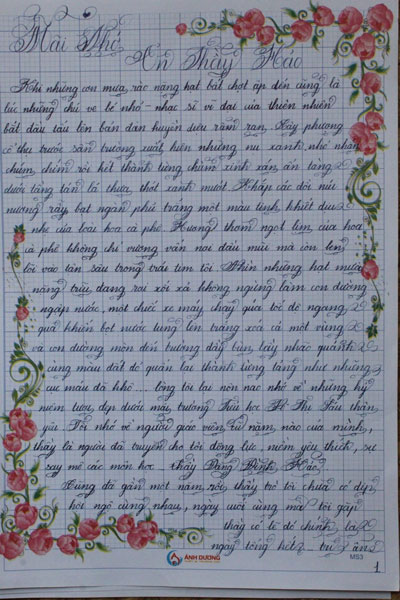 Mãi Nhớ
Ơn Thầy Hảo
Khi những cơn mưa rào nặng hạt bất chợt ập đến cũng là
lúc những chú ve bé nhỏ - nhạc sĩ vĩ đại của thiên nhiên
bắt đầu tấu lên bản đàn huyền diệu râm ran. Cây phượng
cổ thụ trước sân trường xuất hiện những nụ xanh nhỏ nhắn
chúm chím rồi kết thành từng chùm xinh xắn ẩn
dưới tầng tán lá thưa thớt xanh mướt. Khắp các đồi núi
nương rẫy bạt ngàn phủ trắng một màu tinh khiết dịu
nhẹ của loài hoa cà phê. Hương thơm ngọt lịm của hoa
cà phê không chỉ vương vấn nơi đầu mũi mà còn len
lỏi vào tận sâu trong trái tim tôi. Nhìn những hạt mưa
nặng trĩu đang rơi xối xả không ngừng làm con đường
ngập nước, một chiếc xe máy chạy qua tốc độ ngang
qua khiến bọt nước tung lên trắng xóa cả một vùng
và con đường mòn đến trường đầy bùn lầy nhão quánh
cùng màu đất đỏ quán lại thành từng tảng như những
cục máu đã khô... lòng tôi lại nôn nao nhớ về những kỷ
niệm tươi đẹp dưới mái trường Tiểu học Võ Thị Sáu thân
yêu. Tôi nhớ về người giáo viên cũ năm nào của mình,
thầy là người đã truyền cho tôi động lực, niềm yêu thích, sự
say mê các môn học... thầy Đặng Đình Hảo.
Cũng đã gần một năm rồi thầy trò tôi chưa có dịp
hội ngộ cùng nhau, ngày cuối cùng mà tôi gặp
thầy có lẽ đó chính là
ngày tổng kết tri ân
ÁNH DƯƠNG
MS3
1